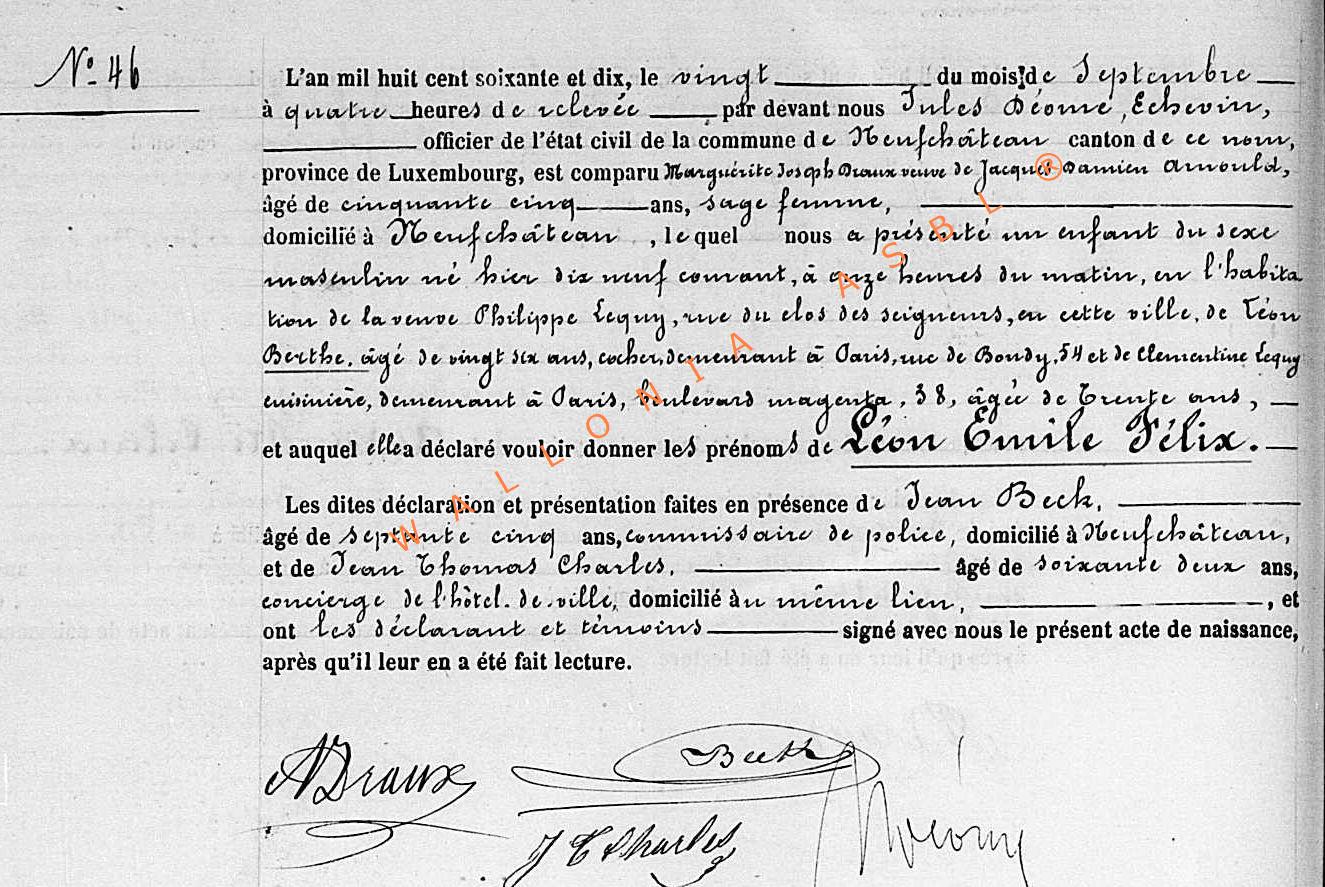 N° 46
L'an mil huit cent soixante et dix, le vingt du mois de Septembre
à quatre heures de relevée par devant nous Jules Déome, Echevin,
officier de l'état civil de la commune de Neufchâteau canton de ce nom,
province de Luxembourg, est comparu Marguérite Joseph Draux veuve de Jacques Damien Arnould,
âgé de cinquante cinq ans, sage femme,
domicilié à Neufchâteau, lequel nous a présenté un enfant du sexe
masculin né hier dix neuf courant, à onze heures du matin, en l'habita
tion de la veuve Philippe Lequy, rue du clos des seigneurs, en cette ville, de Léon
Berthe, âgé de vingt six ans, cocher, demeurant à Paris, rue de Bondy, 54 et de Clementine Lequy
cuisinière, demeurant à Paris, boulevard magenta, 38, âgée de Trente ans,
et auquel elle a déclaré vouloir donner les prénoms de Léon Emile Félix.
Les dites déclaration et présentation faites en présence de Jean Beck,
âgé de septante cinq ans, commissaire de police, domicilié à Neufchâteau,
et de Jean Thomas Charles, âgé de soixante deux ans,
concierge de l'hôtel de ville, domicilié au même lieu, et
ont les déclarant et témoins signé avec nous le présent acte de naissance,
après qu'il leur en a été fait lecture.
WALLONIA ASBL ®
Draux
Beck
J T Charles